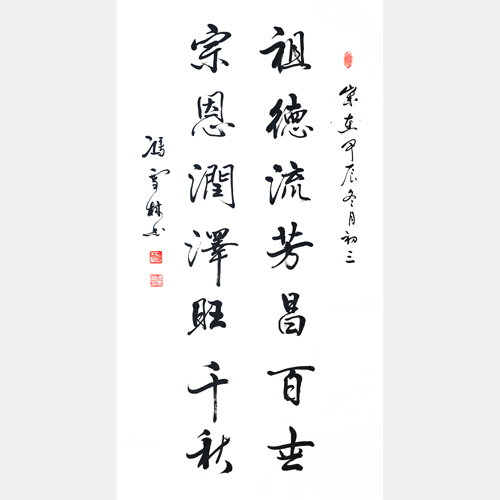 崇在甲辰冬月初三
祖德流芳昌百世
宗恩潤澤旺千秋
馮雪林书